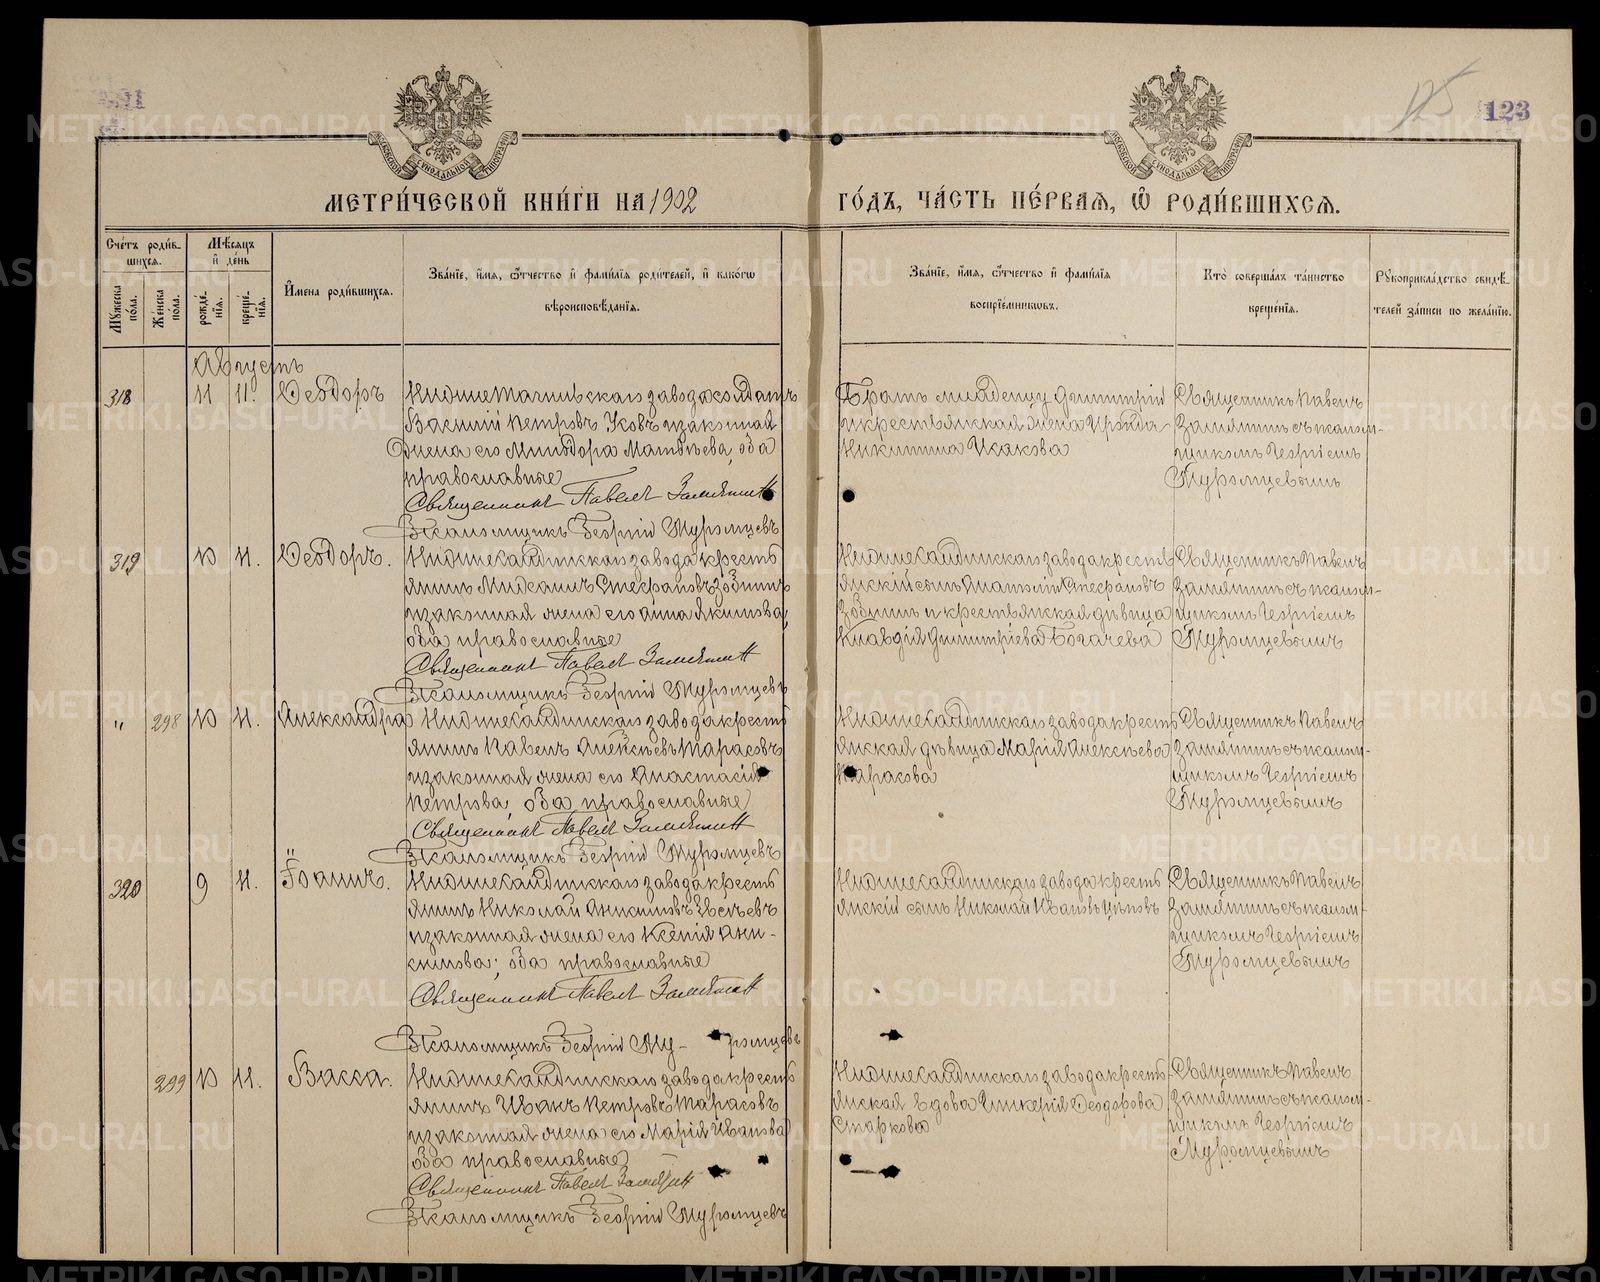 125
123
МЕТРИ́ЧЕСКОЙ КНИ́ГИ НА 1902
ГО́ДЪ, ЧА́СТЬ ПЕ́РВАѦ, Ѡ҆ РОДИ́ВШИХСѦ.
Сче́тъ роди́в-
шихсѧ.
Мѣ́сѧцъ
и҆ де́нь
Мꙋ́жеска по́ла.
Же́нска по́ла.
рожде́-
нїѧ.
креще́-
нїѧ.
И҆мена роди́вшихсѧ.
Зва́нїе, и҆́мѧ, ѻ҆́тчество и҆ фами́лїѧ роди́телей, и҆ како́гѡ
вѣроисповѣ́данїѧ.
Зва́нїе, и҆́мѧ, ѻ҆́тчество и҆ фами́лїѧ
воспрїе́мниковъ.
Кто̀ соверша́лъ та́инство
креще́нїѧ.
Рꙋкоприкла́дство свидѣ́-
телей за́писи по жела́нїю.
Августъ
318 11 11. Ѳеодоръ
Нижнетагильскаго завода солдатъ
Василій Петровъ Уковъ и законная
жена его Матвѣева, оба
православные
Священникъ Павелъ Замятинъ
Псаломщикъ Георгій Муромцевъ
Братъ младенцу Димитрій
и крестьянская жена
Никитина Исакова
Священникъ Павелъ
Замятинъ съ псалом-
щикомъ Георгіемъ
Муромцевымъ
319 10 11. Ѳеодоръ.
Нижнесалдинскаго завода крестья
янинъ Михаилъ Стефановъ Зобнинъ
и законная жена его Анна Якимова,
оба православные
Священникъ Павелъ Замятинъ
Псаломщикъ Георгій Муромцевъ
Нижнесалдинскаго завода кресть
янскій сынъ Анатолій Стефановъ
Зобнинъ и крестьянская дѣвица
Клавдія Димитріева Богачева
Священникъ Павелъ
Замятинъ съ псалом-
щикомъ Георгіемъ
Муромцевымъ
" 298 10 11. Александра
Нижнесалдинскаго завода кресть
янинъ Павелъ Алексѣевъ Тарасовъ
и законная жена его Анастасія
Петрова, оба православные
Священникъ Павелъ Замятинъ
Псаломщикъ Георгій Муромцевъ
Нижнесалдинскаго завода кресть
янская дѣвица Марія Алексѣева
Тарасова
Священникъ Павелъ
Замятинъ съ псалом-
щикомъ Георгіемъ
Муромцевымъ
320 9 11. Іоаннъ.
Нижнесалдинскаго завода кресть
янинъ Николай Евсѣевъ
и законная жена его Ксенія Ани-
кимова; оба православные
Священникъ Павелъ Замятинъ
Псаломщикъ Георгій Му- ромцевъ
Нижнесалдинскаго завода кресть
янскій сынъ Николай Ивановъ
Священникъ Павелъ
Замятинъ съ псалом-
щикомъ Георгіемъ
Муромцевымъ
299 10 11. Васса.
Нижнесалдинскаго завода кресть
янинъ Иванъ Петровъ Тарасовъ
и законная жена его Марія Иванова
оба православные
Священникъ Павелъ Замятинъ
Псаломщикъ Георгій Муромцевъ
Нижнесалдинскаго завода кресть-
янская вдова Гликерія Ѳеодорова
Старкова
Священникъ Павелъ
Замятинъ съ псалом-
щикомъ Георгіемъ
Муромцевымъ
METRIKI.GASO-URAL.RU